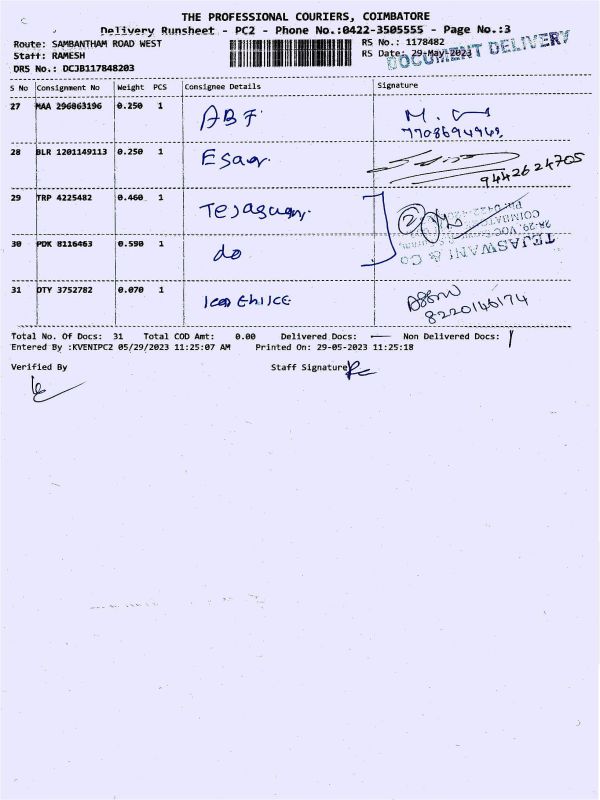 THE PROFESSIONAL COURIERS, COIMBATORE
Delivery Runsheet - PC2 - Phone No.:0422-3505555 - Page No.:3
Route: SAMBANTHAM ROAD WEST
RS No.: 1178482
Staff: RAMESH
RS Date: 29-May-2023
DOCUMENT DELIVERY
DRS No.: DCJB117848203
S No Consignment No Weight PCS Consignee Details Signature
27 MAA 296863196 0.250 1 ABF
7708694969
28 BLR 1201149113 0.250 1
9442624705
29 TRP 4225482 0.460 1
TEJASWANI & CO
30 PDK 8116463 0.590 1 do
31 DTY 3752782 0.070 1
8220146174
Total No. Of Docs: 31 Total COD Amt: 0.00 Delivered Docs: Non Delivered Docs:
Entered By :KVENIPC2 05/29/2023 11:25:07 AM Printed On: 29-05-2023 11:25:18
Verified By Staff Signature